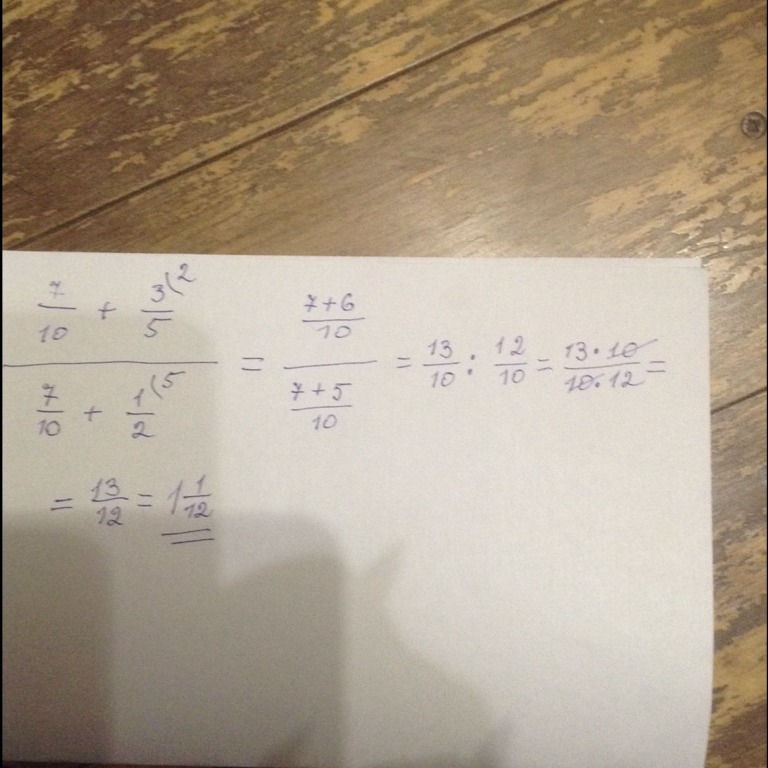 7/10 + 3/5 (2 / 7/10 + 1/2 (5 = 7+6/10 / 7+5/10 = 13/10 : 12/10 = 13·10/10·12 =
= 13/12 = 1 1/12